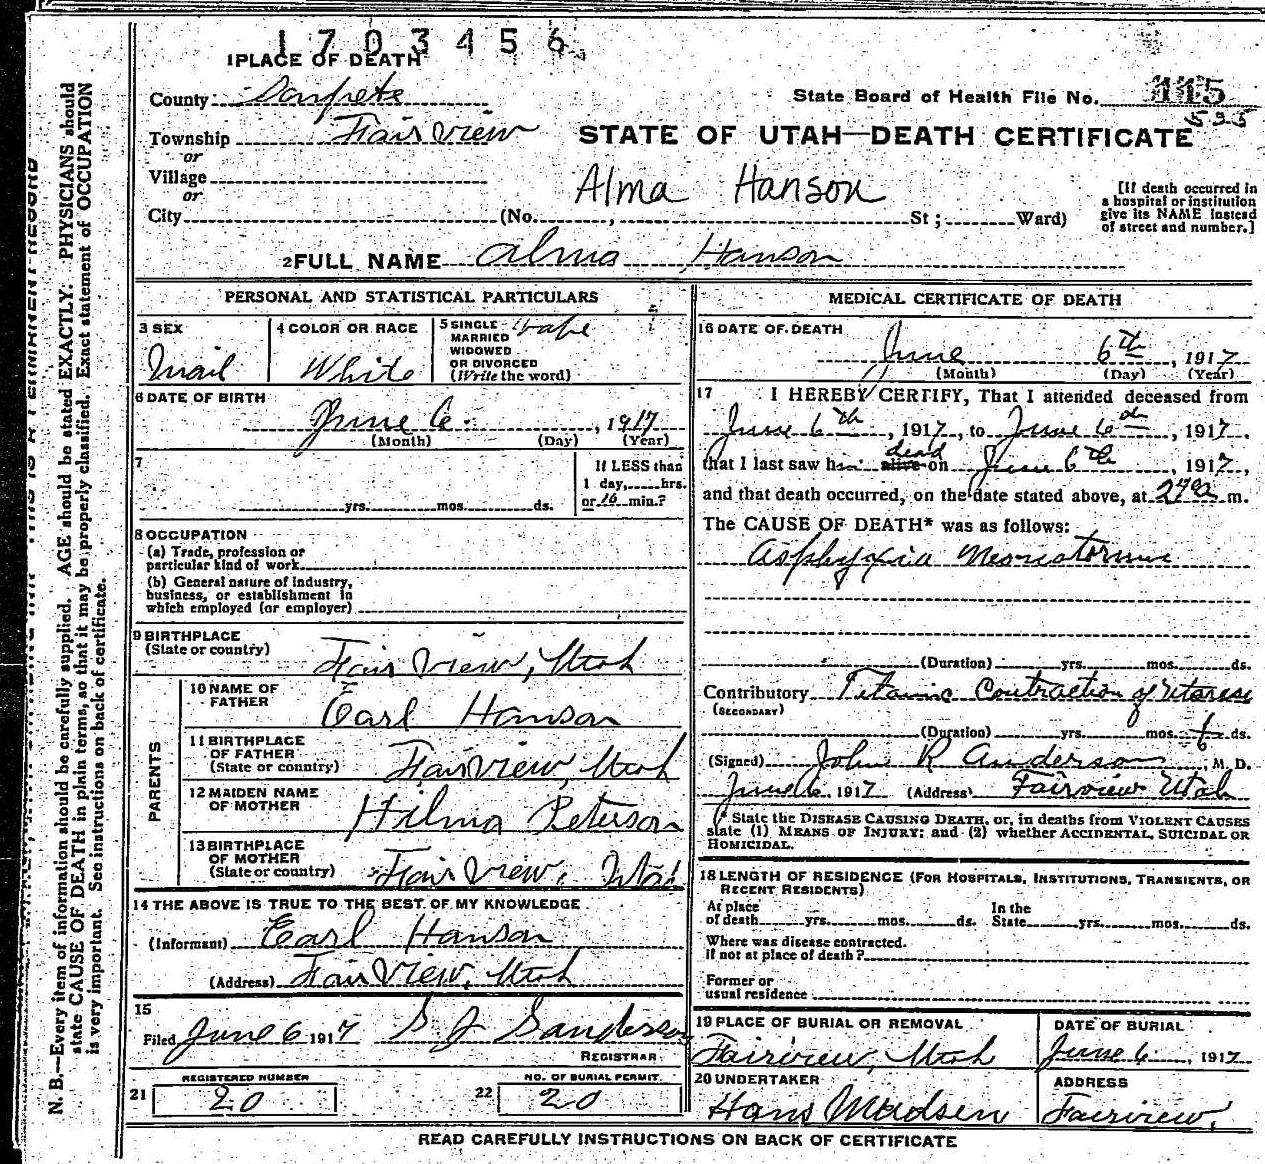 1703456
1 PLACE OF DEATH
County Sanpete
State Board of Health File No. 115
595
Township Fairview
STATE OF UTAH—DEATH CERTIFICATE
or
Village
or
Alma Hanson
City (No. , St ; Ward)
[If death occurred in
a hospital or institution
give its NAME instead
of street and number.]
2 FULL NAME Alma Hanson
PERSONAL AND STATISTICAL PARTICULARS
3 SEX
Mail
4 COLOR OR RACE
White
5 SINGLE
MARRIED
WIDOWED
OR DIVORCED
(Write the word)
6 DATE OF BIRTH
June 6 , 1917
(Month) (Day) (Year)
7
yrs. mos. ds.
If LESS than
1 day, hrs.
or 10 min.?
8 OCCUPATION
(a) Trade, profession or
particular kind of work
(b) General nature of industry,
business, or establishment in
which employed (or employer)
9 BIRTHPLACE
(State or country)
Fairview, Utah
PARENTS
10 NAME OF
FATHER
Earl Hanson
11 BIRTHPLACE
OF FATHER
(State or country)
Fairview, Utah
12 MAIDEN NAME
OF MOTHER
Hilma Peterson
13 BIRTHPLACE
OF MOTHER
(State or country)
Fairview, Utah
14 THE ABOVE IS TRUE TO THE BEST OF MY KNOWLEDGE
(Informant) Earl Hanson
(Address) Fairview, Utah
15
Filed June 6 1917 S J Sanderson
REGISTRAR
REGISTERED NUMBER
21 20
NO. OF BURIAL PERMIT.
22 20
MEDICAL CERTIFICATE OF DEATH
16 DATE OF DEATH
June 6th , 1917
(Month) (Day) (Year)
17 I HEREBY CERTIFY, That I attended deceased from
June 6th , 1917, to June 6th , 1917,
dead
that I last saw him alive on June 6th , 1917,
and that death occurred, on the date stated above, at m.
The CAUSE OF DEATH* was as follows:
Asphyxia Neonatorum
(Duration) yrs. mos. ds.
Contributory Titanic Contraction of Uterus
(SECONDARY)
(Duration) yrs. mos. 1/6 ds.
(Signed) John R Anderson, M. D.
June 6, 1917 (Address) Fairview Utah
* State the DISEASE CAUSING DEATH, or, in deaths from VIOLENT CAUSES
state (1) MEANS OF INJURY; and (2) whether ACCIDENTAL, SUICIDAL OR
HOMICIDAL.
18 LENGTH OF RESIDENCE (FOR HOSPITALS, INSTITUTIONS, TRANSIENTS, OR
RECENT RESIDENTS)
At place
of death yrs. mos. ds.
In the
State yrs. mos. ds.
Where was disease contracted.
if not at place of death?
Former or
usual residence
19 PLACE OF BURIAL OR REMOVAL
Fairview, Utah
DATE OF BURIAL
June 6 , 1917
20 UNDERTAKER
Hans Madsen
ADDRESS
Fairview.
READ CAREFULLY INSTRUCTIONS ON BACK OF CERTIFICATE
N. B.—Every item of information should be carefully supplied. AGE should be stated EXACTLY. PHYSICIANS should
state CAUSE OF DEATH in plain terms, so that it may be properly classified. Exact statement of OCCUPATION
is very important. See instructions on back of certificate.